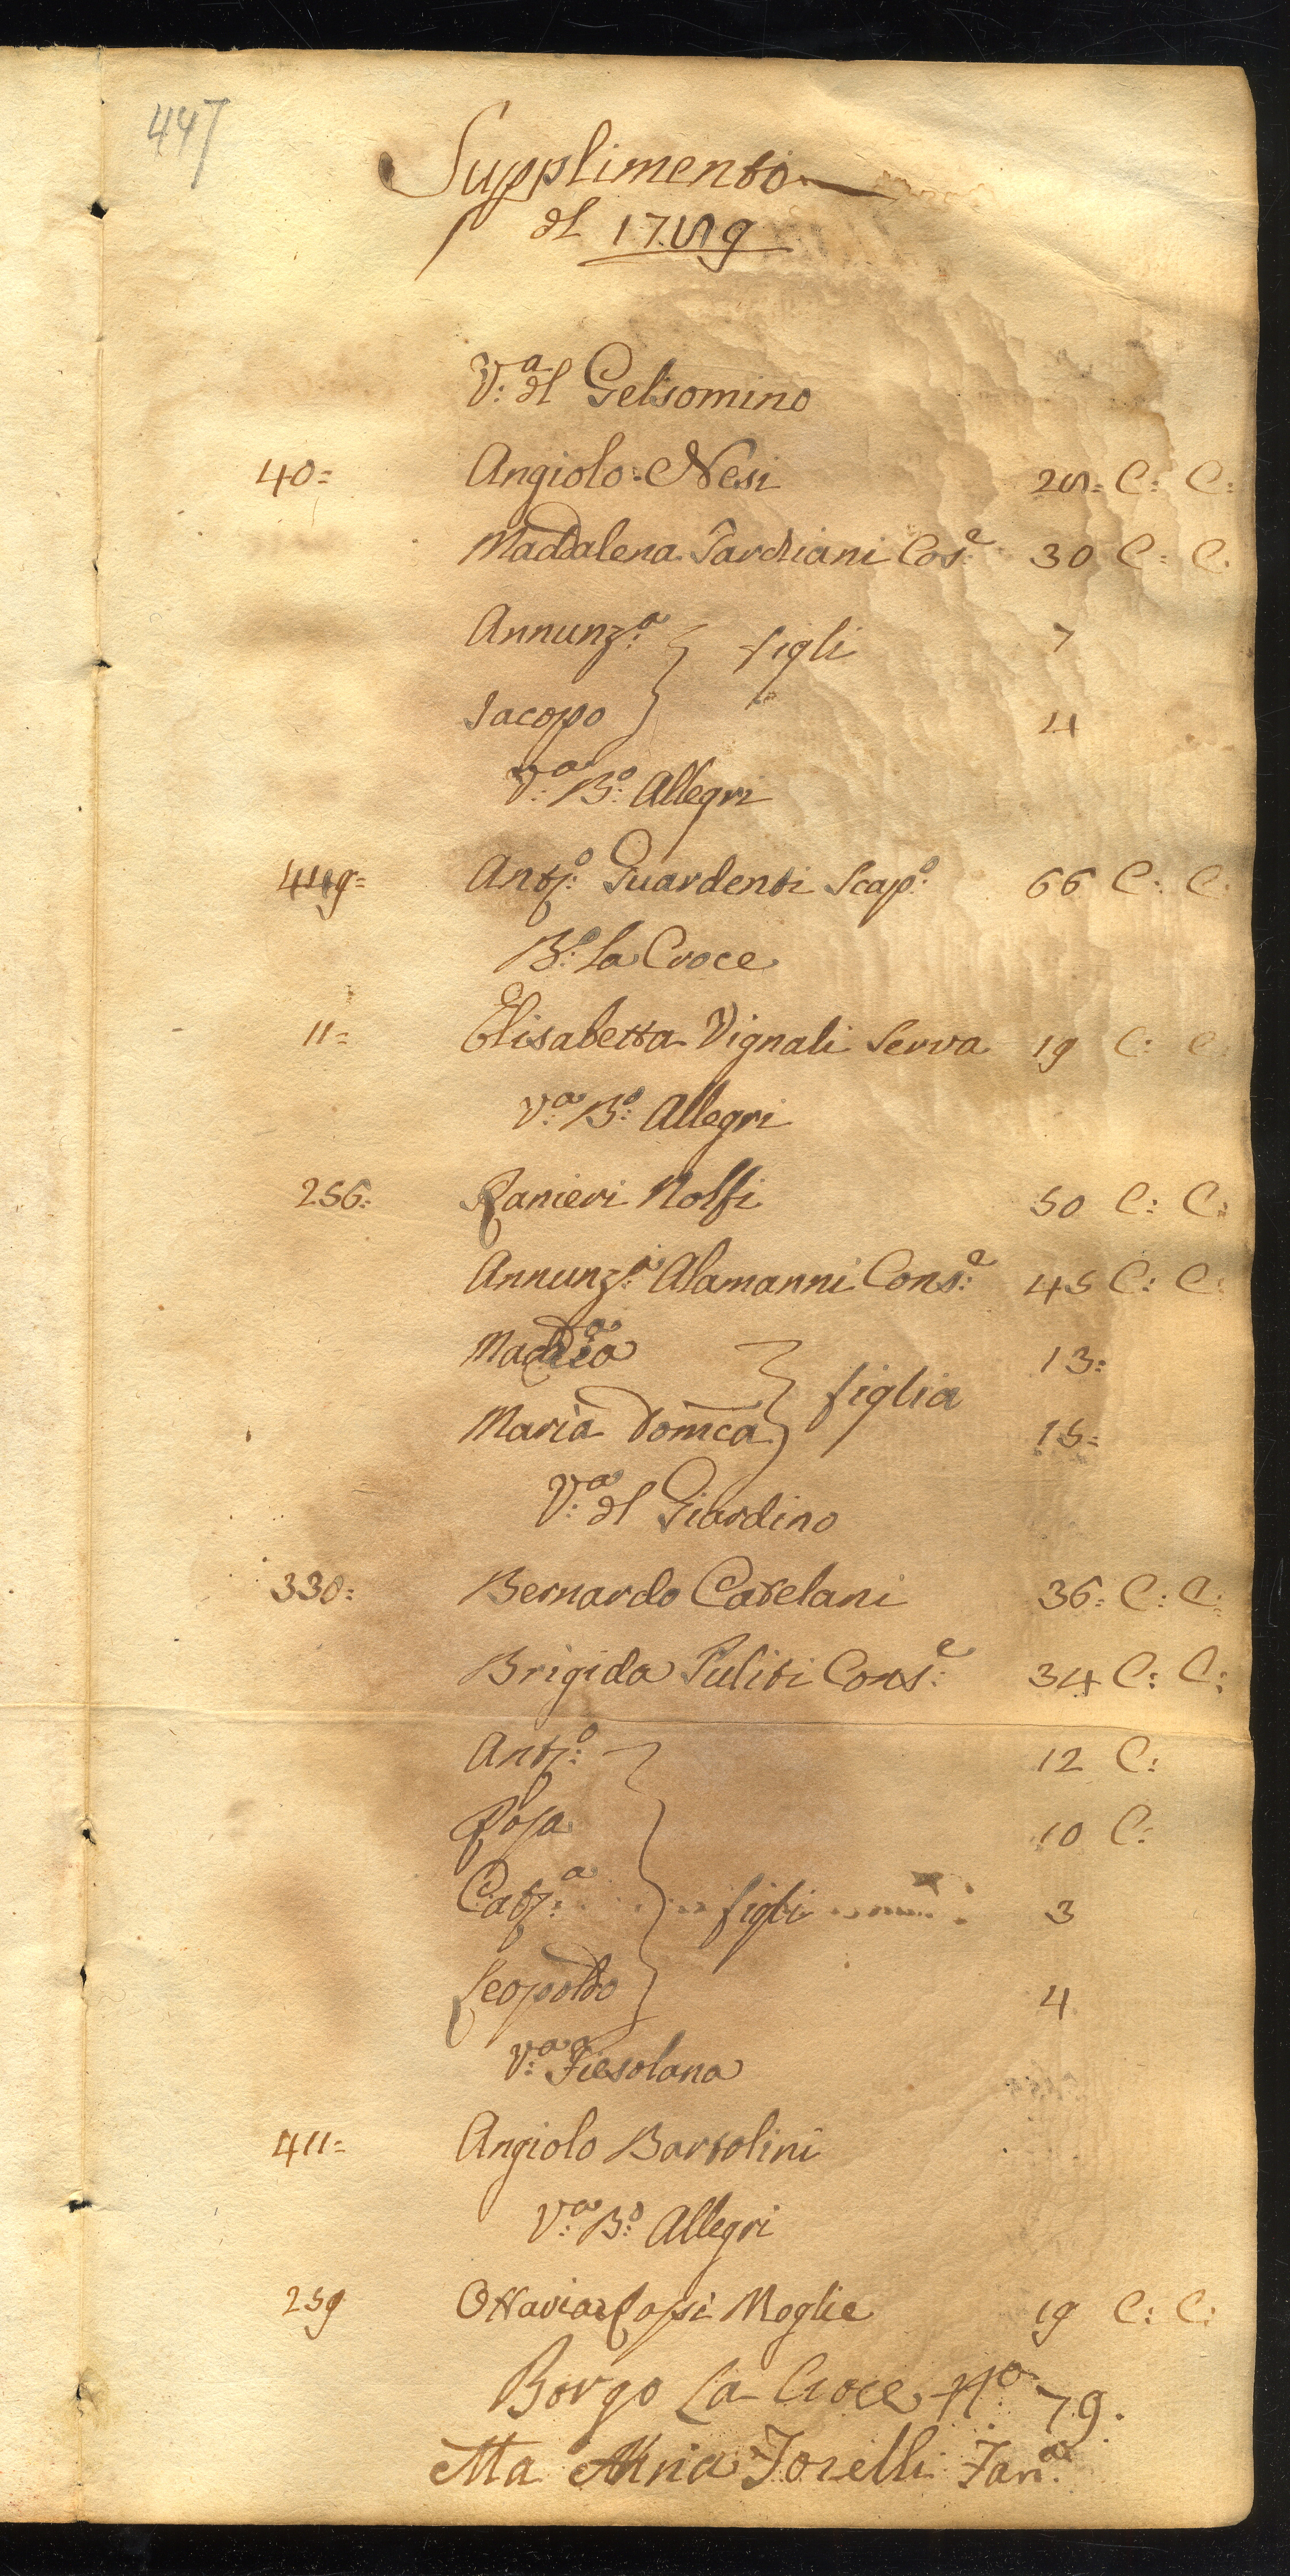 447
Supplimento
dl 1759
V:a dl Gelsomino
40= Angiolo Nesi 25= C: C:
Maddalena Tardiani Cos:e 30 C: C:
Annunz:a figli 7
Jacopo 4
V:a B:o Allegri
Ant:o Guardenti Scap:o 66 C: C:
B:o La Croce
11= Elisabetta Vignali Serva 19 C: C:
V:a B:o Allegri
256: Ranieri Nolfi 50 C: C:
Annunz:a Alamanni Cons:e 45 C: C:
13=
Maria Domca figlia 15=
V:a dl Giardino
330: Bernardo Catelani 36= C: C:
Brigida Puliti Cons:e 34 C: C:
Ant:o 12 C:
Rosa 10 C:
Cat:a figli 3
Leopoldo 4
V:a Fiesolana
411= Angiolo Bartolini
V:a B:o Allegri
259 Ottavia Rossi Moglie 19 C: C:
Borgo La Croce No 79.
Ma Anna Torelli